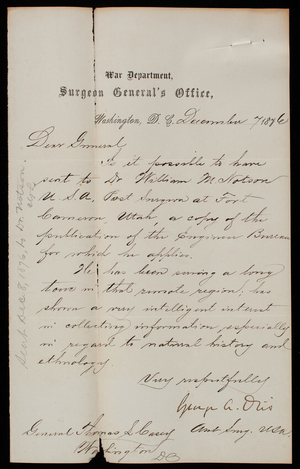 War Department,
Surgeon General's Office,
Washington, D. C. December 7 1876
Dear General
Is it possible to have
sent to Dr William M Notson
U S A, Post Surgeon at Fort
Cameron, Utah, a copy of the
publication of the Engineer Bureau
for which he applies.
He has been serving a long
time in that remote region, has
shown a very intelligent interest
in collecting information, especially
in regard to natural history and
ethnology.
Very respectfully
George A. Otis
Asst Surg. USA.
General Thomas L Casey
Washington
DC
Sent Dec. 8, 1876, to Dr. Notson.